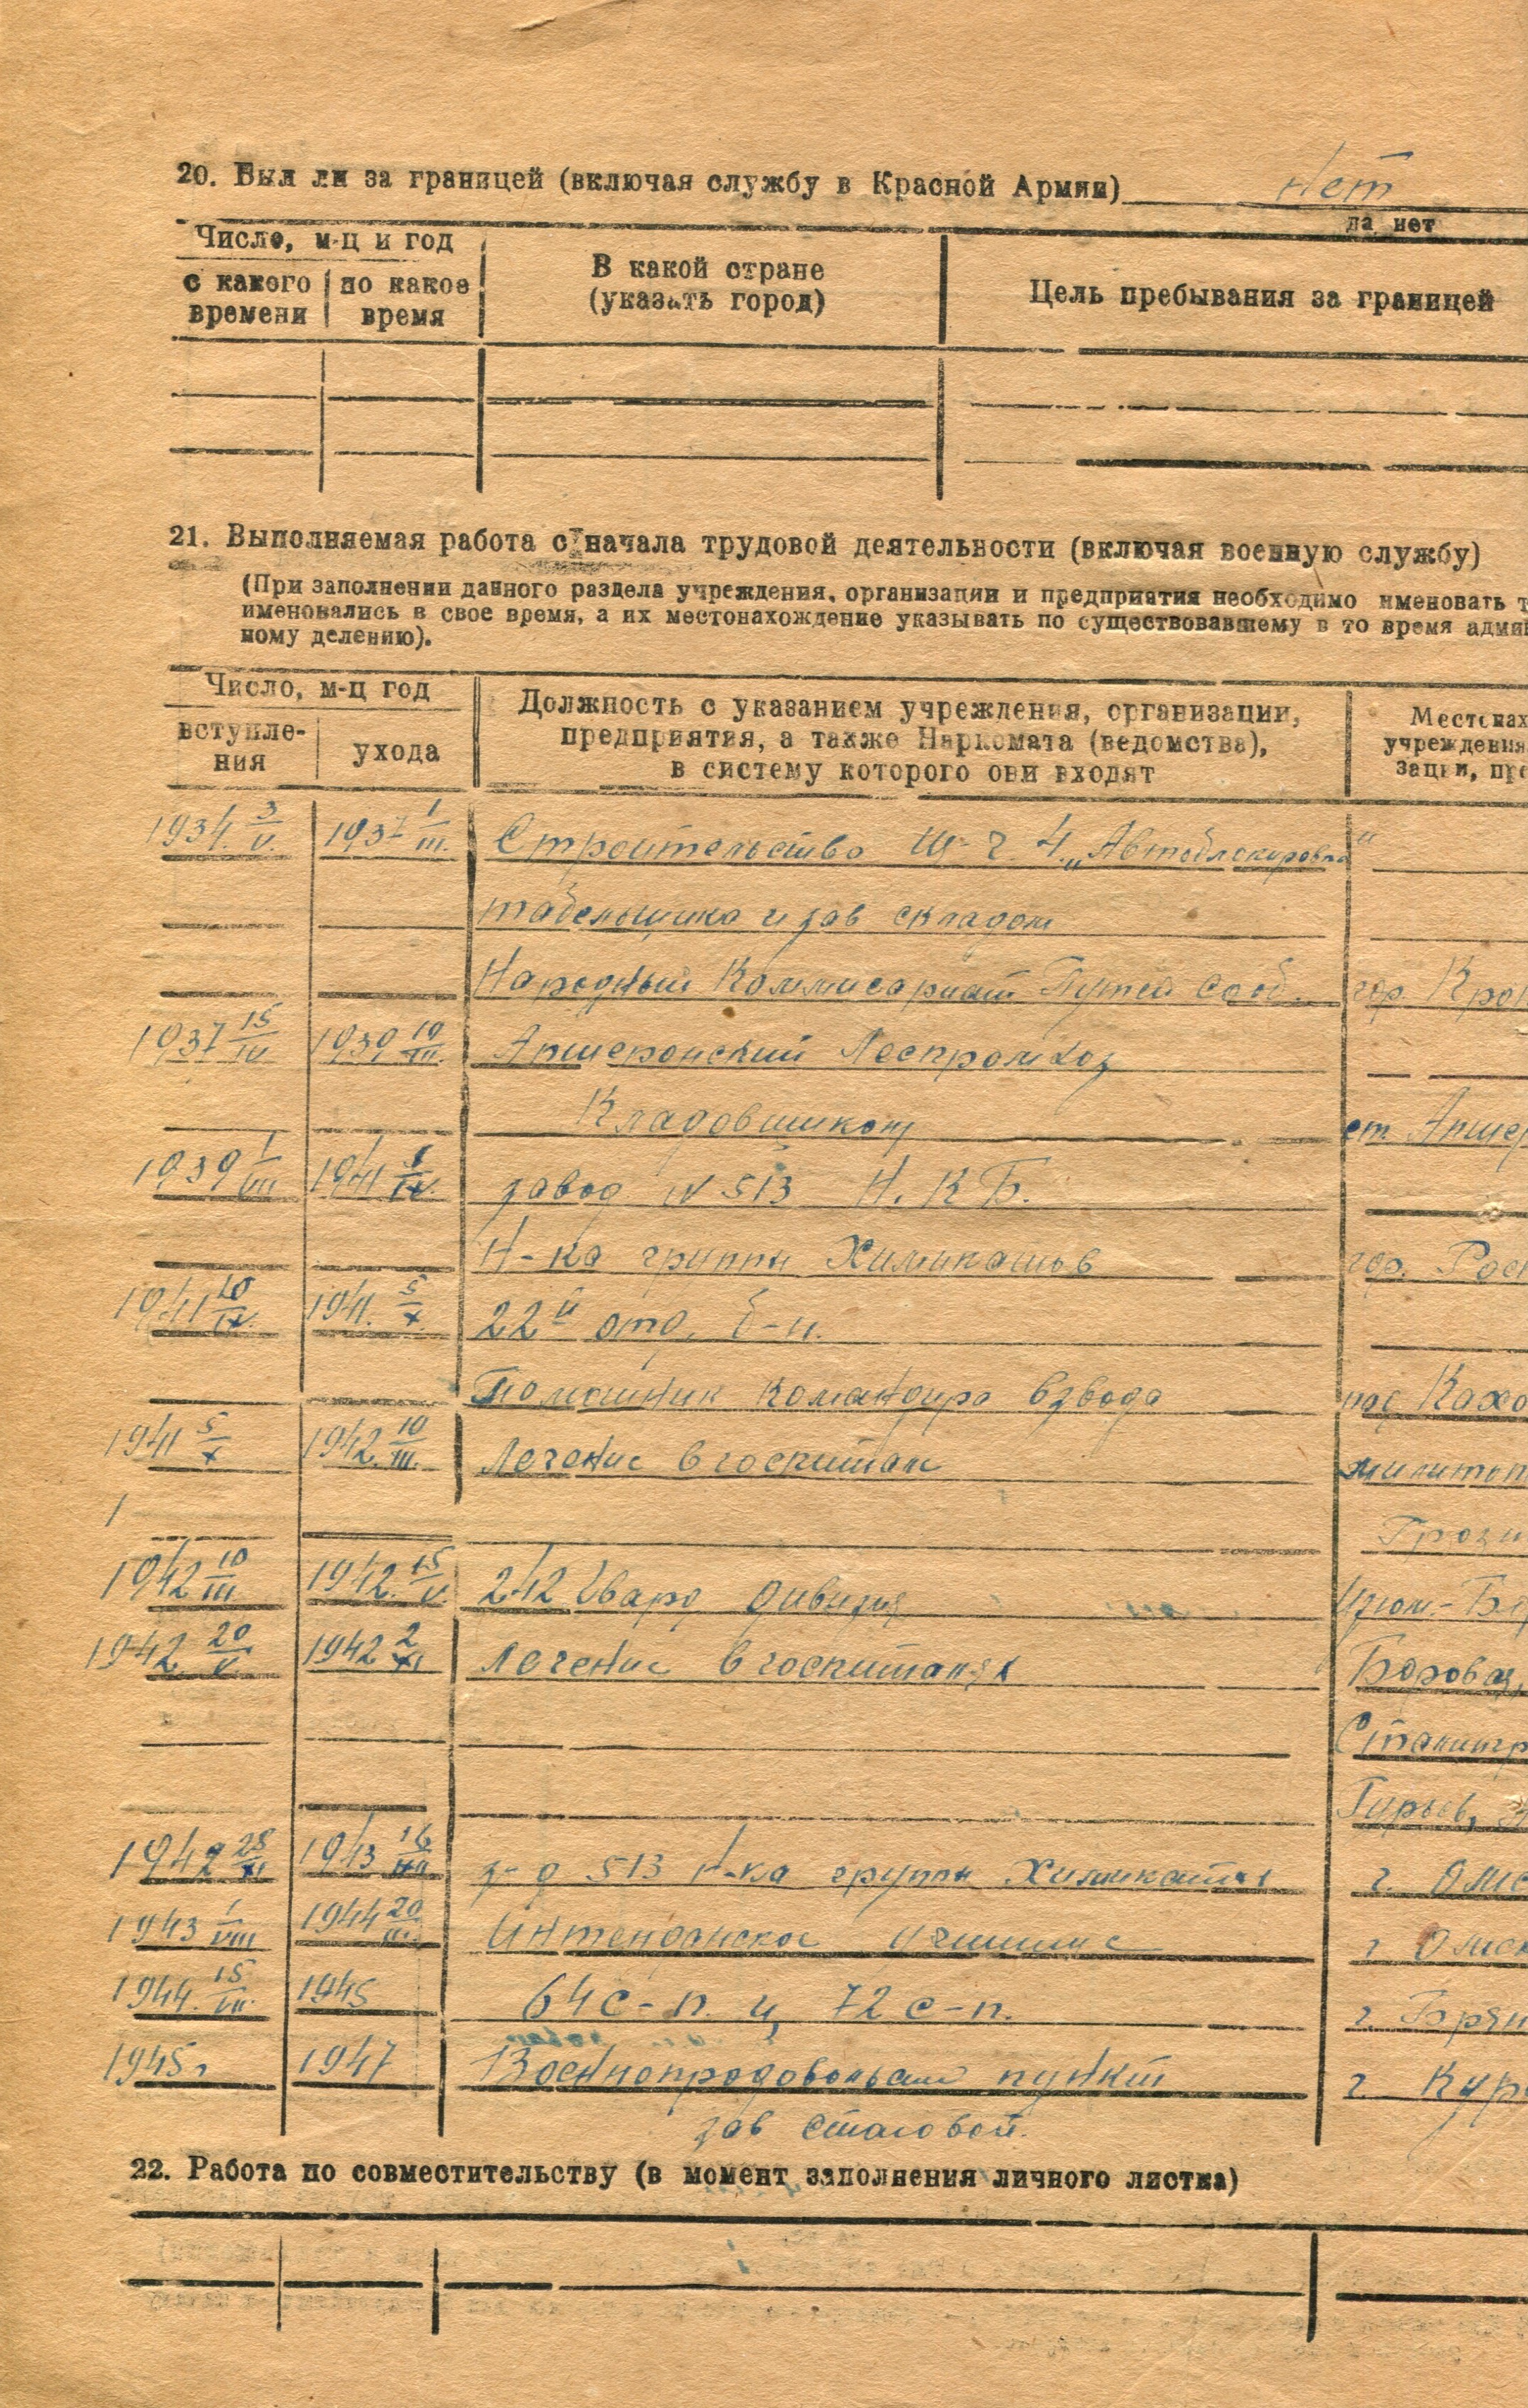 20. Был ли за границей (включая службу в Красной Армии) Нет
да, нет
Число, м-ц и год
с какого времени
по какое время
В какой стране
(указать город)
Цель пребывания за границей
21. Выполняемая работа с начала трудовой деятельности (включая военную службу)
(При заполнении данного раздела учреждения, организации и предприятия необходимо именовать т
именовались в свое время, а их местонахождение указывать по существовавшему в то время адми
ному делению).
Число, м-ц год
вступле-
ния
ухода
Должность с указанием учреждения, организации,
предприятия, а также Наркомата (ведомства),
в систему которого они входят
Местонах
учреждения
зации, пре
1934 3/V. 1937 1/III. Строительство Ш-ч 4 „Автоблокировка"
табельщика и зав складом
Народный Коммисариат Путей Сооб. гор. Кро
1937 15/IV 1939 10/III. Апшеронский Леспромхоз
Кладовщиком ст. Апшер
1939 1/VIII 1941 завод N 513 Н.К.Б.
Н-ка группы Химикатов гор. Рос
1941 10/IX. 1941. 5/X. 22й отд. б-н.
Помошник командира взвода пос Кахо
1941 5/X 1942 10/III. Лечение в госпитале
1
Грозн
1942 10/III 1942. 15/V. 242 Гвард дивизия Изюм-
1942 20/V. 1942 2/XI Лечение в госпиталях
Гурьев,
1942 28/XI 1943 16 з-д 513 н-ка группы Химикатов г. Омс
1943 1/VIII 1944 20/III. Интенданское училище г Омск
1944. 15/VII. 1945 64 с-п. и 72 с-п. г. Брян
1945 г 1947 Военнопродовольств пункт г. Кур
зав столовой.
22. Работа по совместительству (в момент заполнения личного листка)